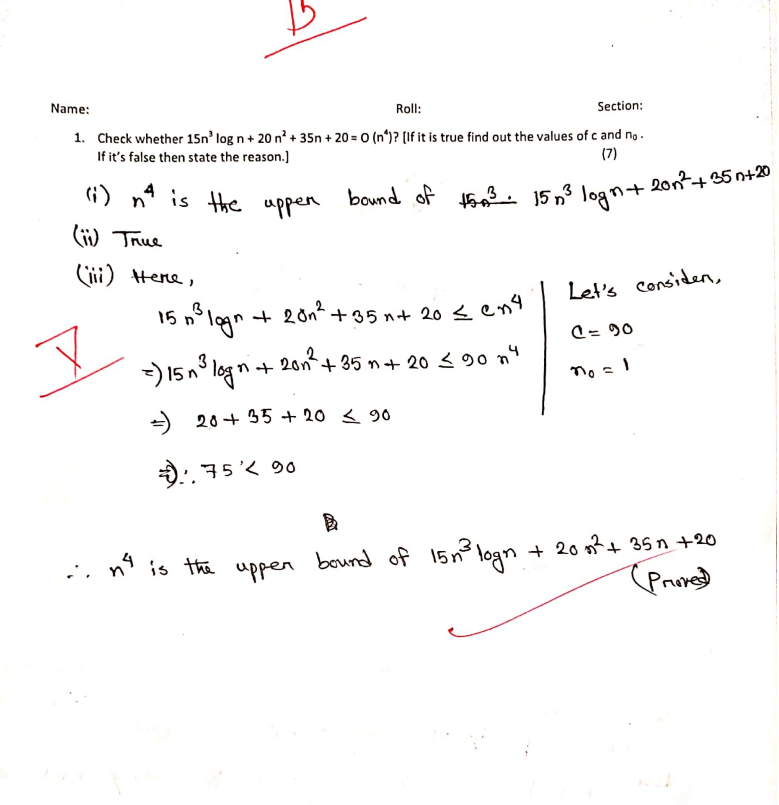 15
Name: Roll: Section:
1. Check whether 15n³ log n + 20 n² + 35n + 20 = O (n⁴)? [If it is true find out the values of c and n₀ .
If it's false then state the reason.] (7)
(i) n⁴ is the upper bound of 15n³. 15n³ logn + 20n² + 35n+20
(ii) True
(iii) Here,
15 n³ logn + 20n² + 35 n + 20 ≤ cn⁴
Let's consider,
C = 90
n₀ = 1
=) 15n³ logn + 20n² + 35 n + 20 ≤ 90 n⁴
=) 20 + 35 + 20 ≤ 90
=) ∴ 75 < 90
∴ n⁴ is the upper bound of 15n³ logn + 20 n² + 35n +20
(Proved)